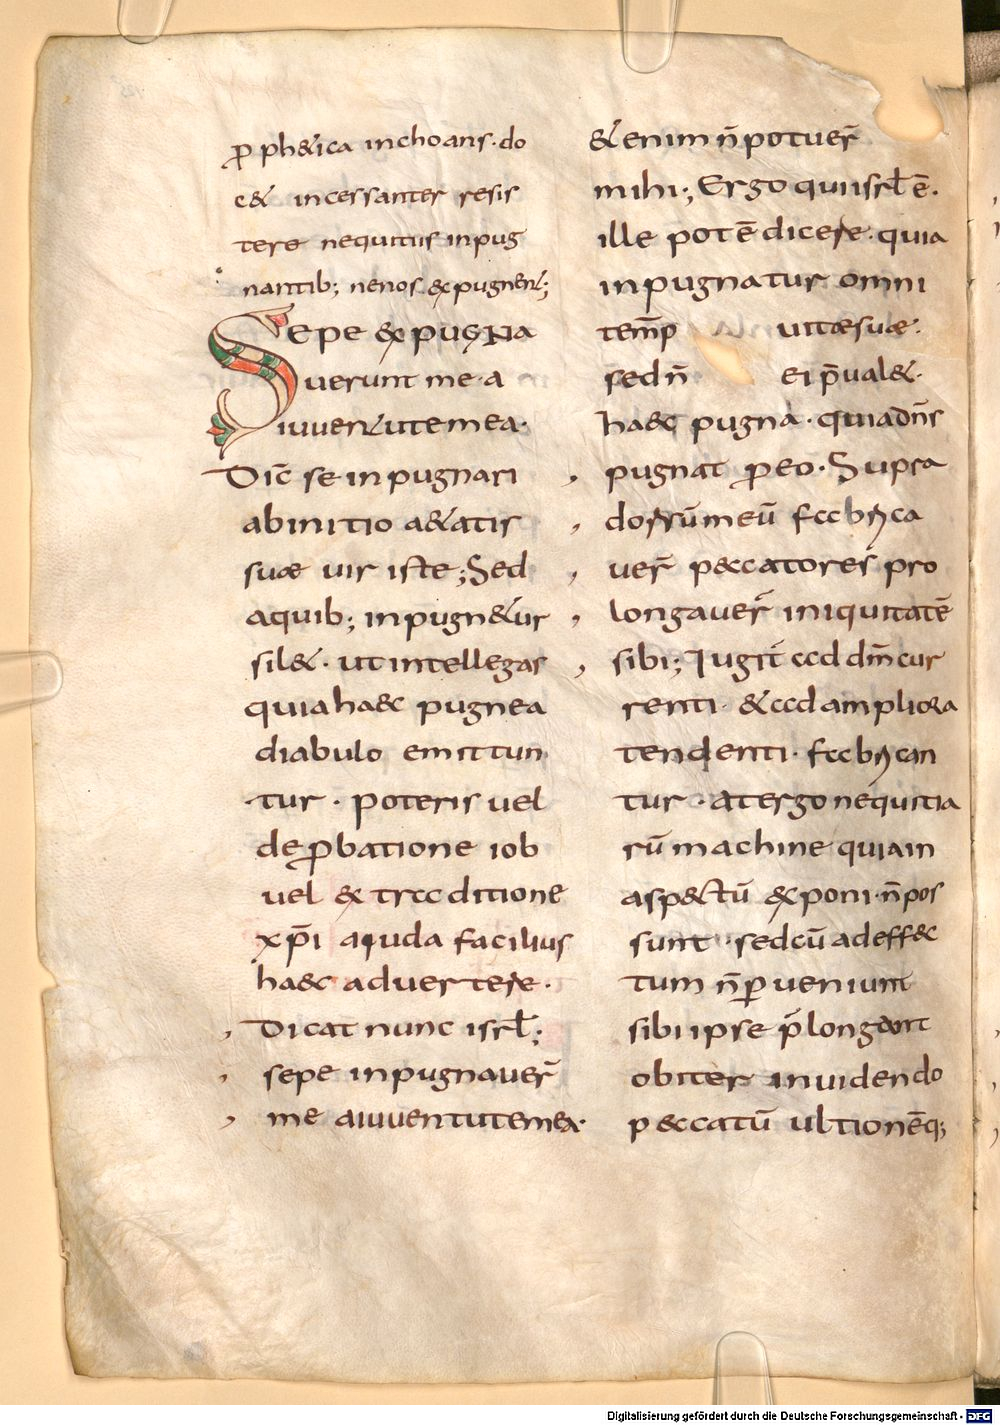 p̄ ph&ica inchoans · do
c& incessanter resis
tere nequitiis inpug
nantib; ne nos expugnent;
Sepe expugna
uerunt me · a
iuuentute mea ·
Dic̄ se inpugnari
ab initio aetatis
suæ uir iste; Sed
a quib; inpugn&ur
sil& · ut intellegas
quia haec pugnea
diabulo emittun
tur · poteris uel
de p̄batione iob
uel ex traditione
xp̄i a iuda facilius
haec aduertere ·
Dicat nunc isrl̄;
sepe inpugnauer̄
me a iuuentute mea ·
&enim n̄ potuer̄
mihi; Ergo qui isrl̄ ē ·
ille potē dicere · quia
inpugnatur omni
temp̄ uitæ suæ ·
sed n̄ ei p̄ual& ·
haec pugna · quia dn̄s
pugnat p̄ eo · Supra
dorsū meū fabrica
uer̄ peccatores pro
longauer̄ iniquitatē
sibi; Iugit̄ ad dn̄m cur
renti · & ad ampliora
tendenti · fabrican
tur · a tergo nequitia
rū machine quia in
aspectū exponi n̄ pos
sunt · sed cū ad effec
tum n̄ p̄ueniunt
sibi ipse p̄longant
obiter inuidendo
peccatū ultionēq;
Digitalisierung gefördert durch die Deutsche Forschungsgemeinschaft - DFG